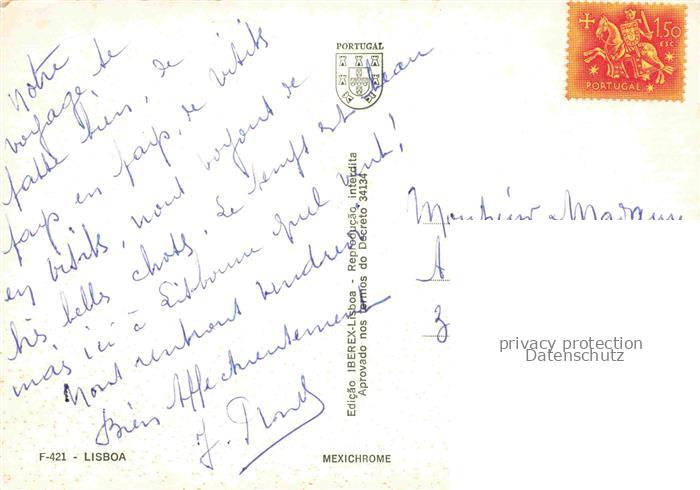 Notre
voyage se
passe bien, de
pays en pays, de visites
en visites, nous voyons de
très belles choses. Le temps est beau
mais ici à Lisbonne quel vent!
Nous rentrons vendredi.
Bien Affectueusement
J.
PORTUGAL
1$50
ESC.
PORTUGAL
Edição IBEREX-Lisboa - Reprodução interdita
Aprovado nos termos do Decreto 34134
Monsieur & Madame
A
3
privacy protection
Datenschutz
F-421 - LISBOA
MEXICHROME